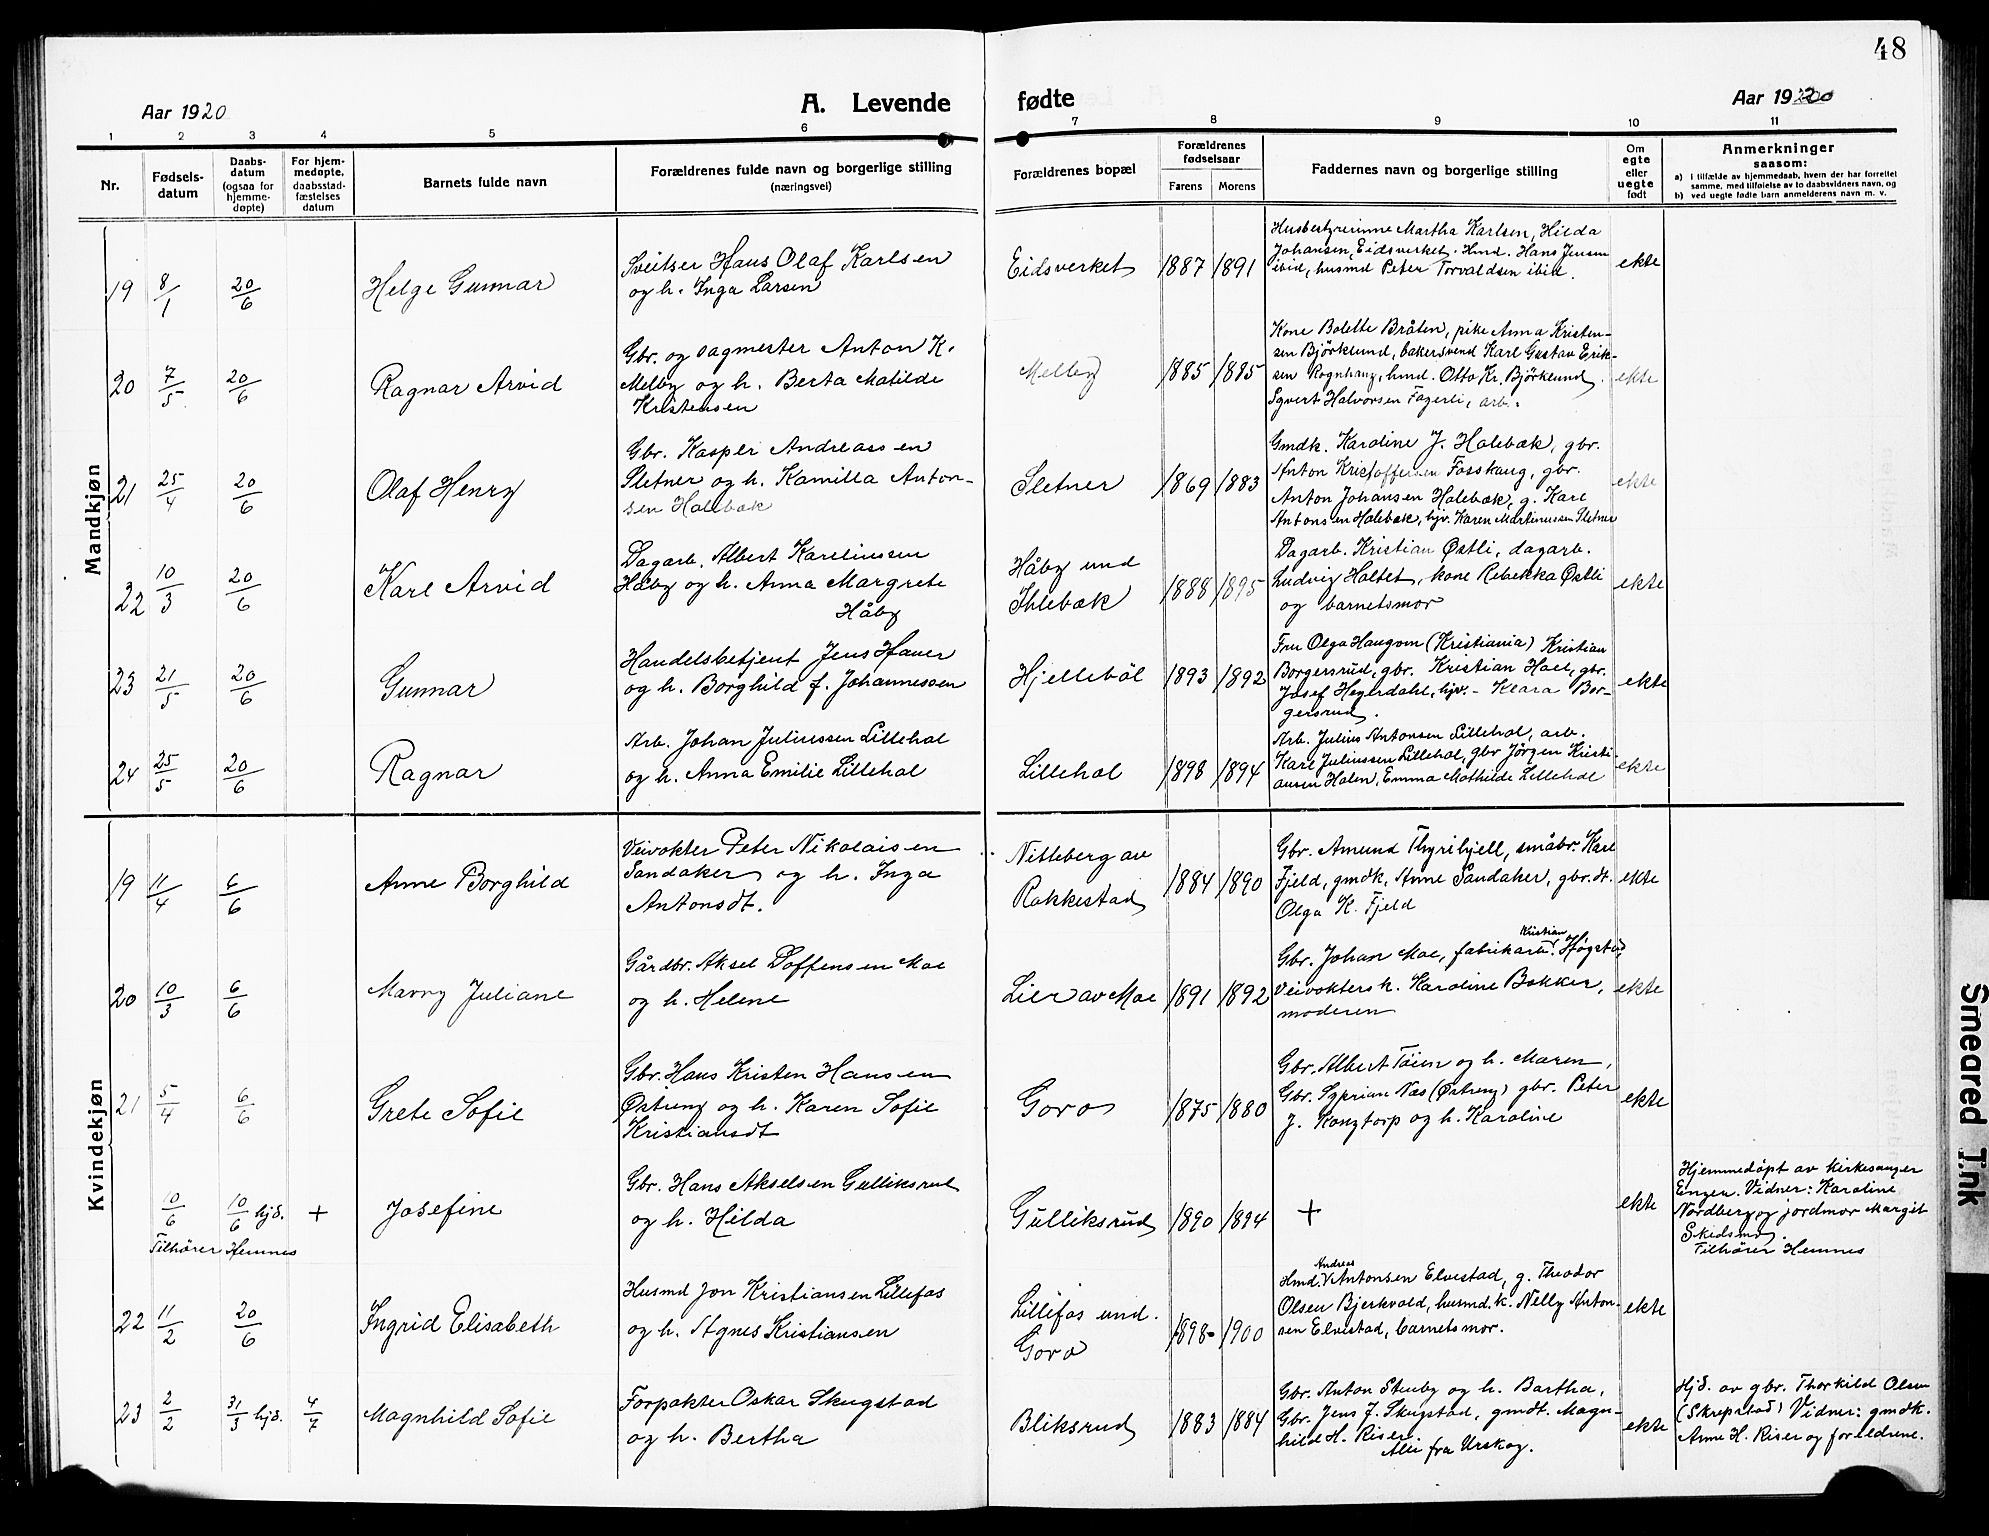 48
Aar 1920
A. Levende
fødte
Aar 1920
1 2 3 4 5 6 7 8 9 10 11
Nr.
Fødsels-
datum
Daabs-
datum
(ogsaa for
hjemme-
døpte)
For hjem-
medøpte,
daabsstad-
fæstelses
datum
Barnets fulde navn
Forældrenes fulde navn og borgerlige stilling
(næringsvei)
Forældrenes bopæl
Forældrenes
fødselsaar
Farens Morens
Faddernes navn og borgerlige stilling
Om
egte
eller
uegte
født
Anmerkninger
saasom:
a) i tilfælde av hjemmedaab, hvem der har forrettet
samme, med tilføielse av to daabsvidners navn, og
b) ved uegte fødte barn anmelderens navn m. v.
Mandkjøn
19 8/1 20/6 Helge Gunnar
Sveitser Hans Olaf Karlsen
og h. Inga Larsen
Eidsverket 1887 1891
Husbestyrerinne Martha Karlsen, Hilda
Johansen, Eidsverket. Hmd. Hans Jensen
ibid, husmd Peter Torvaldsen ibid.
ekte
20 7/5 20/6 Ragnar Arvid
Gbr. og sagmester Anton K.
Melby og h. Berta Matilde
Kristensen
Melby 1885 1885
Kone Bolette Bråten, pike Anna Kristen-
sen Björklund, bakersvend Karl Gustav Erik-
sen Rognhaug, hmd. Otto Kr. Björklund.
Syvert Halvorsen Fagerli, arb.
ekte
21 25/4 20/6 Olaf Henry
Gbr. Kasper Andreassen
Sletner og h. Kamilla Anton-
sen Holebæk
Sletner 1869 1883
Gmdk. Karoline J. Holebæk, gbr.
Anton Kristoffersen Fosshaug, gbr.
Anton Johansen Holebæk, g. Karl
Antonsen Holebæk, hjv. Karen Martinussen Sletner
ekte
22 10/3 20/6 Karl Arvid
Dagarb. Albert Karelinssen
Håby og h. Anna Margrete
Håby
Håby und
Ihlebæk 1888 1895
Dagarb. Kristian Østli, dagarb.
Ludvig Holtet, kone Rebekka Østli
og barnetsmor
ekte
23 21/5 20/6 Gunnar
Handelsbetjent Jens Haner
og h. Borghild f. Johannessen
Hjellebøl 1893 1892
Fru Olga Haugom (Kristiania) Kristian
Borgersrud, gbr. Kristian Hoel, gbr.
Josef Hegerdahl, hjv. - Klara Bor-
gersrud.
ekte
24 25/5 20/6 Ragnar
Arb. Johan Juliussen Lillehol
og h. Anna Emilie Lillehol
Lillehol 1898 1894
Arb. Julius Antonsen Lillehol, arb.
Karl Juliussen Lillehol, gbr Jörgen Kristi-
ansen Holen, Emma Mathilde Lillehol
ekte
Kvindekjøn
19 11/4 6/6 Anne Borghild
Veivokter Peter Nikolaisen
Sandaker og h. Inga
Antonsdt.
Nitteberg av
Rakkestad 1884 1890
Gbr. Amund Thyrihjell, småbr. Karl
Fjeld, gmdk. Anne Sandaker, gbr.dt.
Olga K. Fjeld
ekte
20 10/3 6/6 Marry Juliane
Gårdbr. Aksel Toffensen Moe
og h. Helene
Lier av Moe 1891 1892
Gbr. Johan Moe, fabrikarb. Kristian Høgstad,
Veivokters h. Karoline Bakker,
moderen
ekte
21 5/4 6/6 Grete Sofie
Gbr. Hans Kristen Hansen
Østreng og h. Karen Sofie
Kristiansdt
Goro 1875 1880
Gbr. Albert Töien og h. Maren,
Gbr. Syprian Næs (Østreng) gbr. Peter
J. Kongtorp og h. Karoline
ekte
10/6 10/6 hjd. + Josefine
Tilhører Hemnes
Gbr. Hans Akselsen Gulliksrud
og h. Hilda
Gulliksrud 1890 1894
+
ekte
Hjemmedöpt av kirkesanger
Enger. Vidner: Karoline
Nordberg og jordmor Margit
Skedsmo.
Tilhører Hemnes
22 11/2 20/6 Ingrid Elisabeth
Husmd Jon Kristiansen Lillefos
og h. Agnes Kristiansen
Lillefos und.
Goro 1898 1900
Hmd. Andreas Antonsen Elvestad, g. Theodor
Olsen Bjerkvold, husmd.k. Nelly Anton-
sen Elvestad, barnetsmor.
ekte
23 2/2 31/3 hjd. 4/7 Magnhild Sofie
Forpakter Oskar Skugstad
og h. Bertha
Bliksrud 1883 1884
Gbr. Anton Stenby og h. Bartha,
Gbr. Jens J. Skugstad, gmdt. Magn-
hild H. Riser
Alle fra Urskog.
ekte
Hjd. av gbr. Thorkild Olsen
(Skrepstad) Vidner: gmdk.
Anne H. Riser og foreldrene.
Smeared Ink